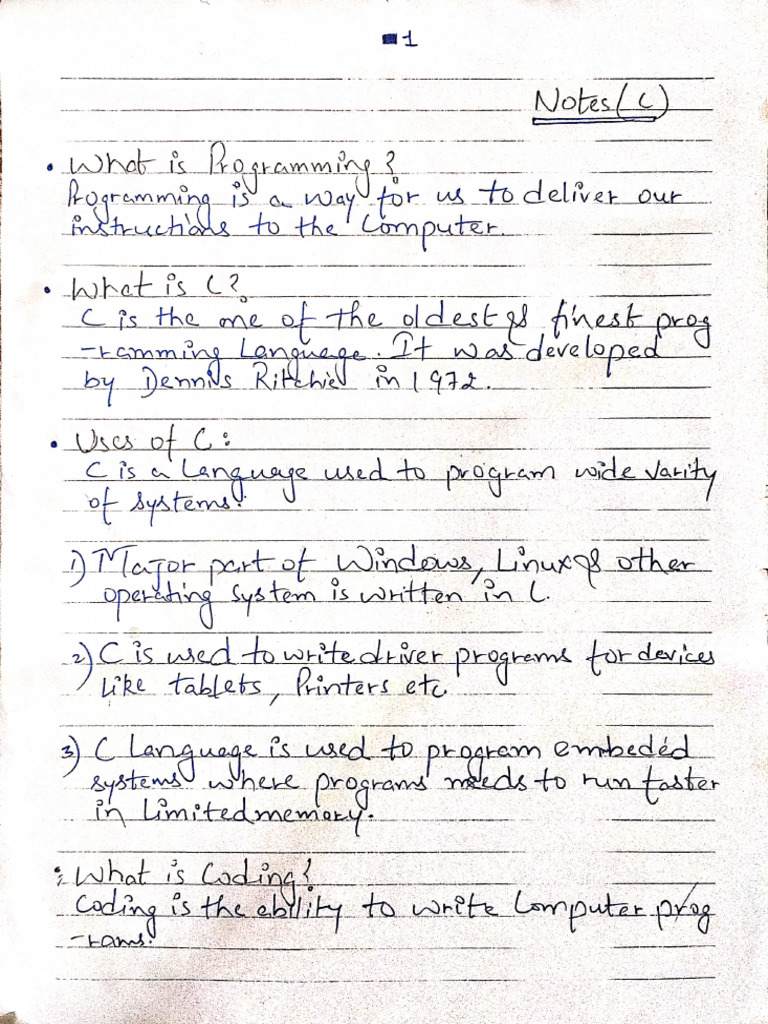 1
Notes(C)
• What is Programming?
Programming is a way for us to deliver our
instructions to the Computer.
• What is C?
C is the one of the oldest & finest prog
-ramming Language. It was developed
by Dennis Ritchie in 1972.
• Uses of C:
C is a Language used to program wide varity
of systems.
1) Major part of Windows, Linux & other
operating system is written in C.
2) C is used to write driver programs for devices
like tablets, Printers etc
3) C Language is used to program embeded
systems where programs needs to run faster
in Limited memory.
• What is Coding?
Coding is the ability to write Computer prog
-rams.